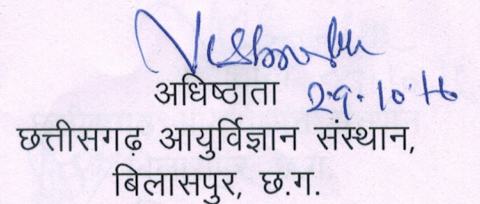 अधिष्ठाता 29.10.16
छत्तीसगढ़ आयुर्विज्ञान संस्थान,
बिलासपुर, छ.ग.